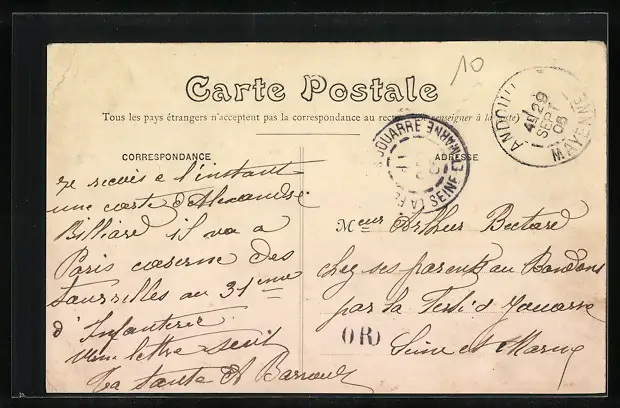 10
Carte Postale
Tous les pays étrangers n'acceptent pas la correspondance au recto (se renseigner à la poste)
CORRESPONDANCE
ADRESSE
ANDOUILLÉ
4E 29
SEPT
06
MAYENNE
JOUARRE
SEINE ET MARNE
Je recois a l'instant
une carte d'Alexandre
Billiard il va a
Paris caserne des
tourelles au 31eme
d'Infanterie
une lettre suit
Ta tante Et Barrault
Meur Arthur Bectard
chez ses parents au Bondons
par la Ferté s Jouarre
Seine et Marne
OR